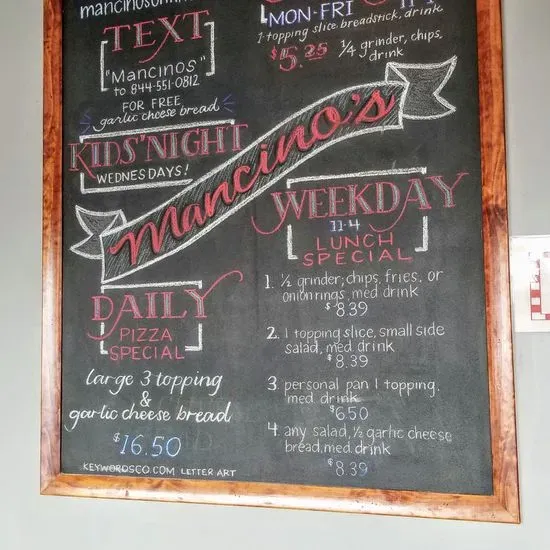 TEXT
"Mancinos"
to 844-551-0812
FOR FREE
garlic cheese bread
KIDS' NIGHT
WEDNESDAYS!
MON-FRI
1 topping slice, breadstick, drink
$5.25
1/4 grinder, chips,
drink
Mancino's
WEEKDAY
11-4
LUNCH
SPECIAL
1. 1/2 grinder; chips, fries, or
onion rings, med drink
$8.39
2. 1 topping slice, small side
salad, med drink
$8.39
3. personal pan 1 topping,
med drink
$6.50
4. any salad, 1/2 garlic cheese
bread, med drink
$8.39
DAILY
PIZZA
SPECIAL
large 3 topping
&
garlic cheese bread
$16.50
KEYWORDSCO.COM LETTER ART